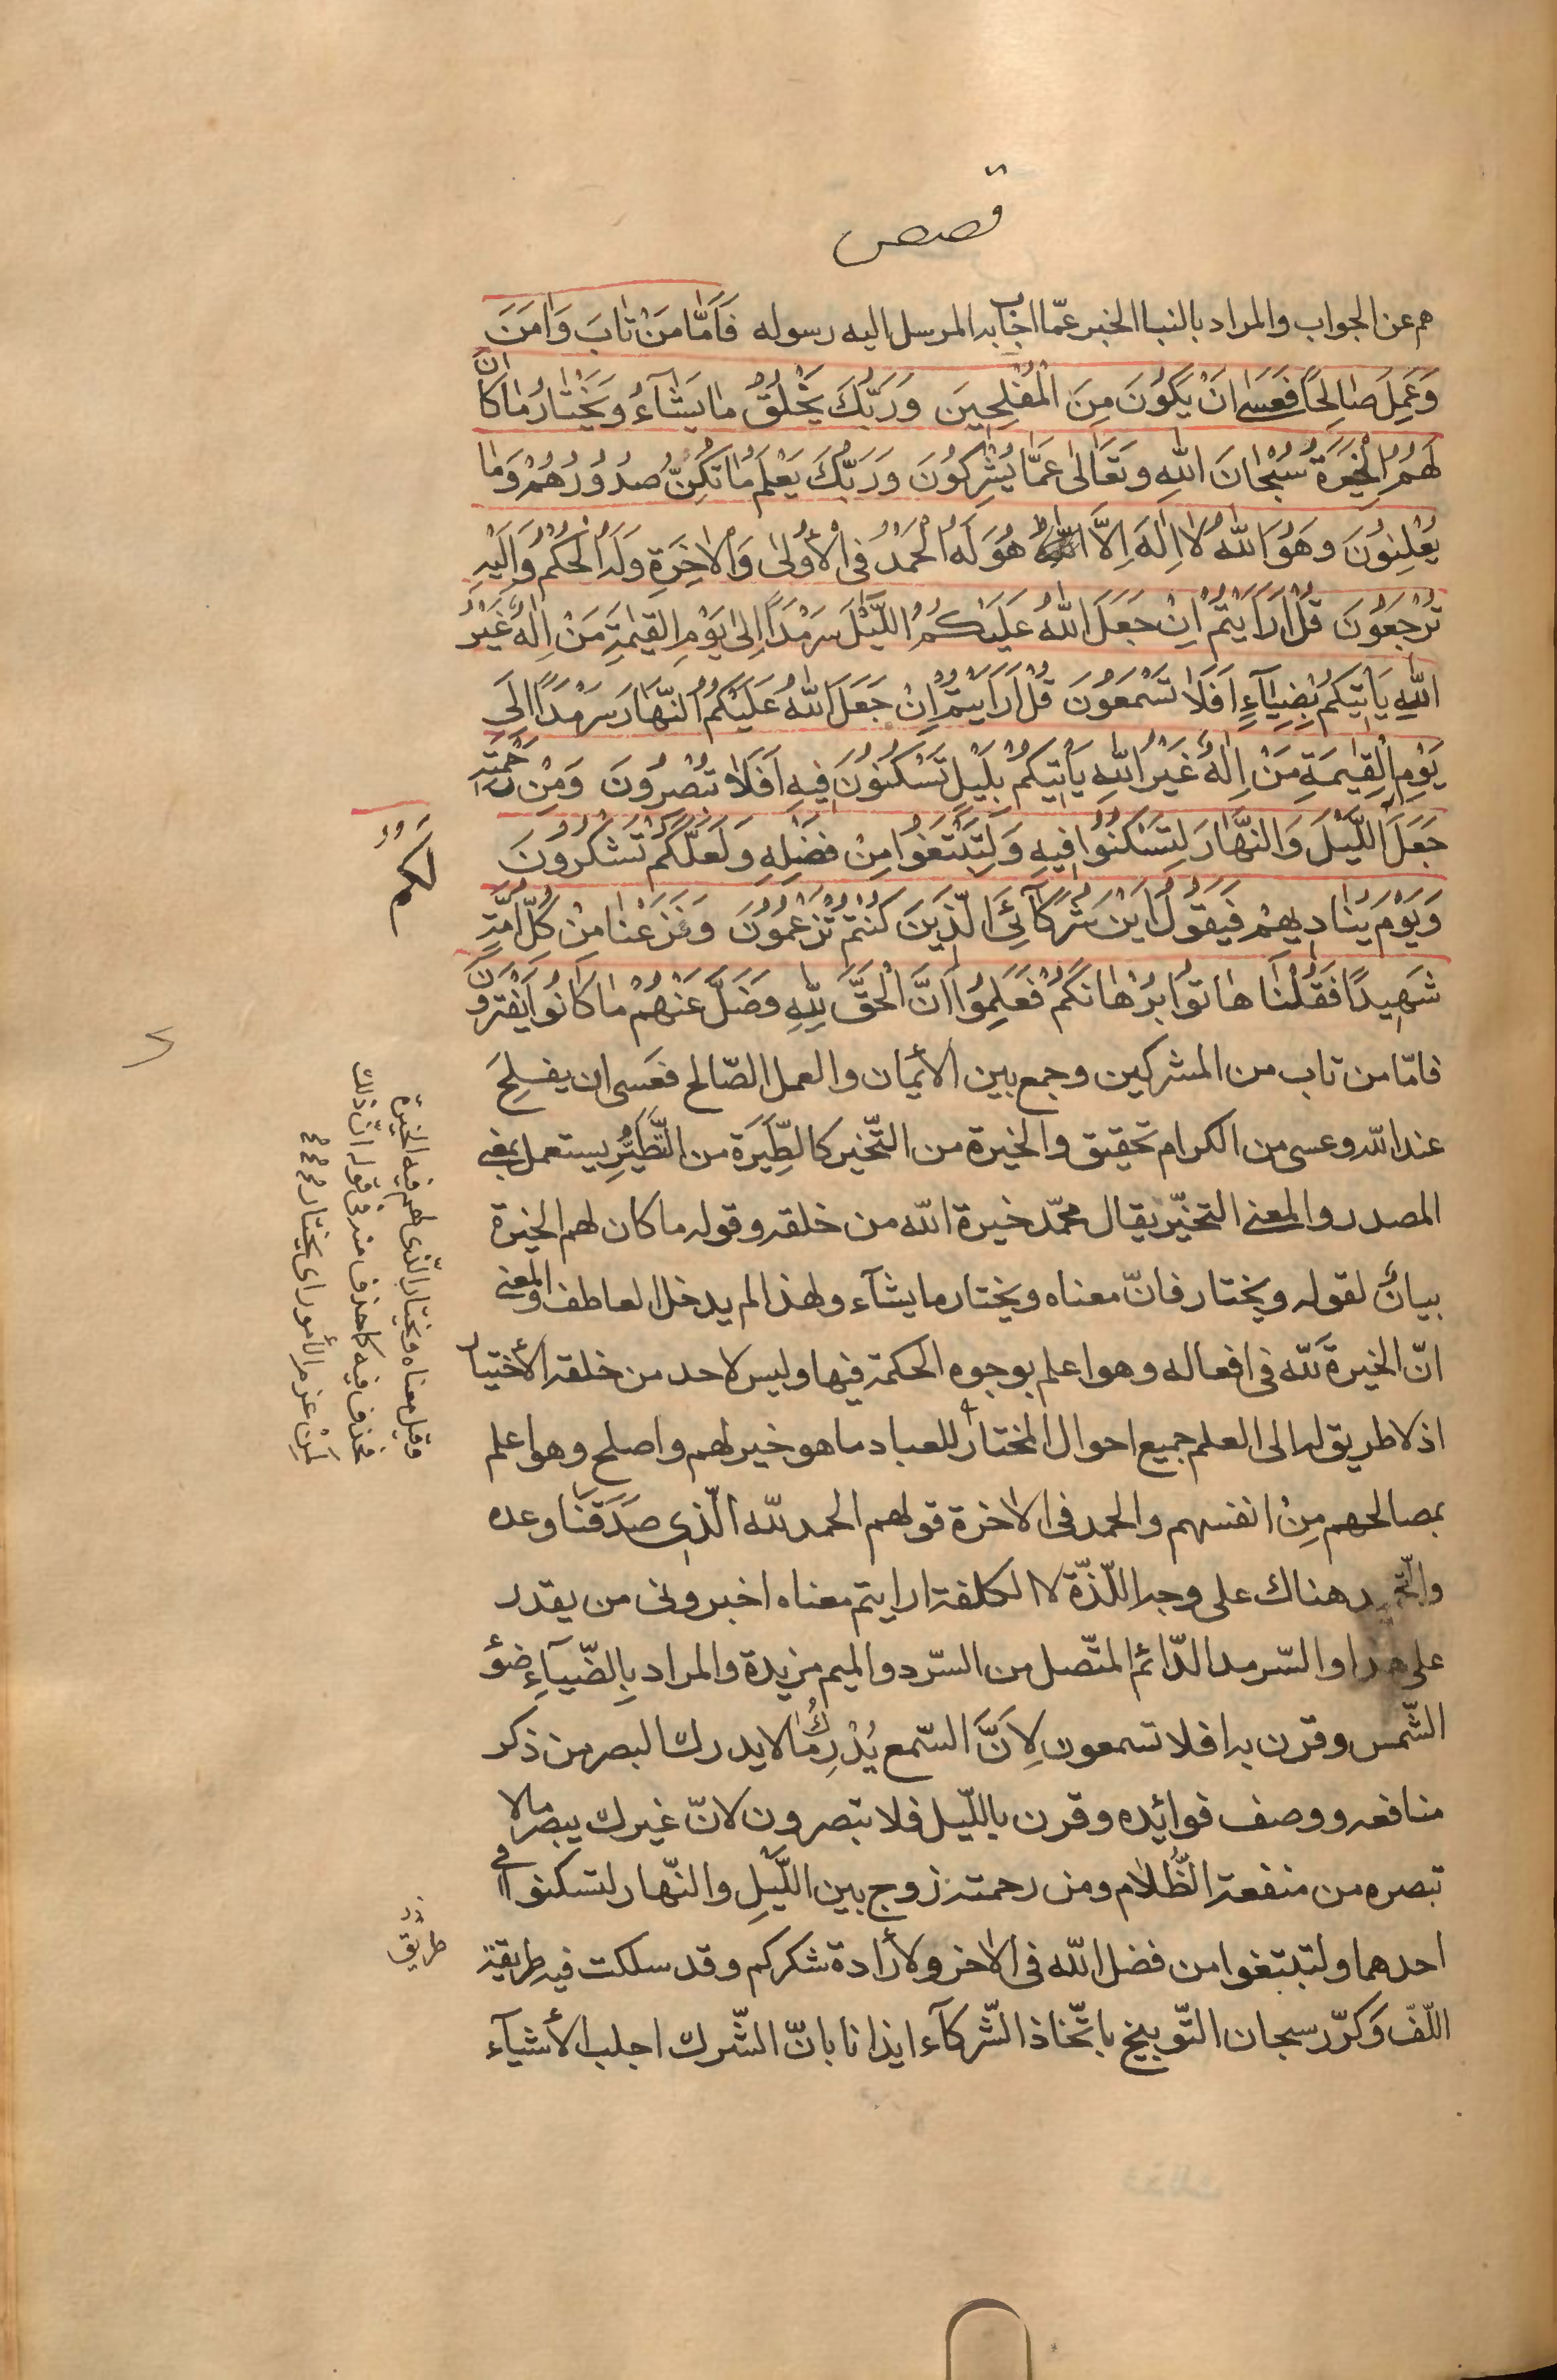 قصص
هم عن الجواب والمراد بالنبا الخبر عمّا اجاب به المرسل اليه رسوله فَاَمّٰا مَنْ تٰابَ وَاٰمَنَ
وَعَمِلَ صٰالِحًا فَعَسىٰ اَنْ يَكُونَ مِنَ الْمُفْلِحِينَ وَرَبُّكَ يَخْلُقُ مٰا يَشٰآءُ وَيَخْتٰارُ مٰا كٰانَ
لَهُمُ الْخِيَرَةُ سُبْحٰانَ اللهِ وَتَعٰالىٰ عَمّٰا يُشْرِكُونَ وَرَبُّكَ يَعْلَمُ مٰا تُكِنُّ صُدُورُهُمْ وَمٰا
يُعْلِنُونَ وَهُوَ اللهُ لٰا اِلٰهَ اِلَّا هُوَ لَهُ الْحَمْدُ فِى الْاُولىٰ وَالْاٰخِرَةِ وَلَهُ الْحُكْمُ وَاِلَيْهِ
تُرْجَعُونَ قُلْ اَرَاَيْتُمْ اِنْ جَعَلَ اللهُ عَلَيْكُمُ اللَّيْلَ سَرْمَدًا اِلىٰ يَوْمِ الْقِيٰمَةِ مَنْ اِلٰهٌ غَيْرُ
اللهِ يَاْتِيكُمْ بِضِيٰآءٍ اَفَلٰا تَسْمَعُونَ قُلْ اَرَاَيْتُمْ اِنْ جَعَلَ اللهُ عَلَيْكُمُ النَّهٰارَ سَرْمَدًا اِلىٰ
يَوْمِ الْقِيٰمَةِ مَنْ اِلٰهٌ غَيْرُ اللهِ يَاْتِيكُمْ بِلَيْلٍ تَسْكُنُونَ فِيهِ اَفَلٰا تُبْصِرُونَ وَمِنْ رَحْمَتِهِ
جَعَلَ اللَّيْلَ وَالنَّهٰارَ لِتَسْكُنُوا فِيهِ وَلِتَبْتَغُوا مِنْ فَضْلِهِ وَلَعَلَّكُمْ تَشْكُرُونَ
لَكُمُ
وَيَوْمَ يُنٰادِيهِمْ فَيَقُولُ اَيْنَ شُرَكٰآئِىَ الَّذِينَ كُنْتُمْ تَزْعُمُونَ وَنَزَعْنٰا مِنْ كُلِّ اُمَّةٍ
شَهِيدًا فَقُلْنٰا هٰاتُوا بُرْهٰانَكُمْ فَعَلِمُوا اَنَّ الْحَقَّ لِلّٰهِ وَضَلَّ عَنْهُمْ مٰا كٰانُوا يَفْتَرُونَ
فامّا من تاب من المشركين وجمع بين الأيمان والعمل الصّالح فعَسى ان يفلِحَ
عند الله وعسى من الكرام تحقيق والخيرة من التّخير كالطِّيَرَة من التَّطَيُّرِ يستعمل بمعنى
المصدر والمعنى التخيّر يقال محمّد خيرة الله من خلقه وقوله ما كان لهم الخيرة
بيانٌ لقوله ويختار فانّ معناه ويختار ما يشآء ولهذا لم يدخل العاطف والمعنى
انّ الخيرة لله فى افعاله وهو اعلم بوجوه الحكمة فيها وليس لاحد من خلقه الأختيار
اذ لا طريق له الى العلم جميع احوال المختار للعباد ما هو خير لهم واصلح وهو اعلم
بمصالحهم مِنْ انفسهم والحمد فى الاخرة قولهم الحمد لله الّذى صَدَقَنا وعده
والتّحميد هناك على وجه اللّذّة لا الكلفة ارايتم معناه اخبرونى من يقدر
على هذا والسّرمد الدّائم المتّصل من السّرد والميم مزيدة والمراد بِالضّيآءِ ضوُ
الشّمس وقرن به افلا تسمعون لِاَنَّ السّمع يُدْرِكُ ما لا يدرك البصر من ذكر
منافعه ووصف فوائده وقرن بالليّل فلا تبصرون لانّ غيرك يبصر ما لا
تبصره من منفعة الظَّلام ومن رحمته زوج بين اللَّيلِ والنّهار لتسكنوا فى
احدهما ولتبتغوا من فضل الله فى الاخر ولأرادة شكركم وقد سلكت فيه طريقة
طريق
اللّفّ وَكرّر سبحان التّوبيخ باتّخاذ الشّركآء ايذانا بانّ الشّرك اجلب الأشيآء
وقيل معناه ويختار الّذى لهم فيه الخيرة
فحذف فيه كما حذف منه فى قوله انّ ذلك
لَمِنْ عزم الأمور اى يختار